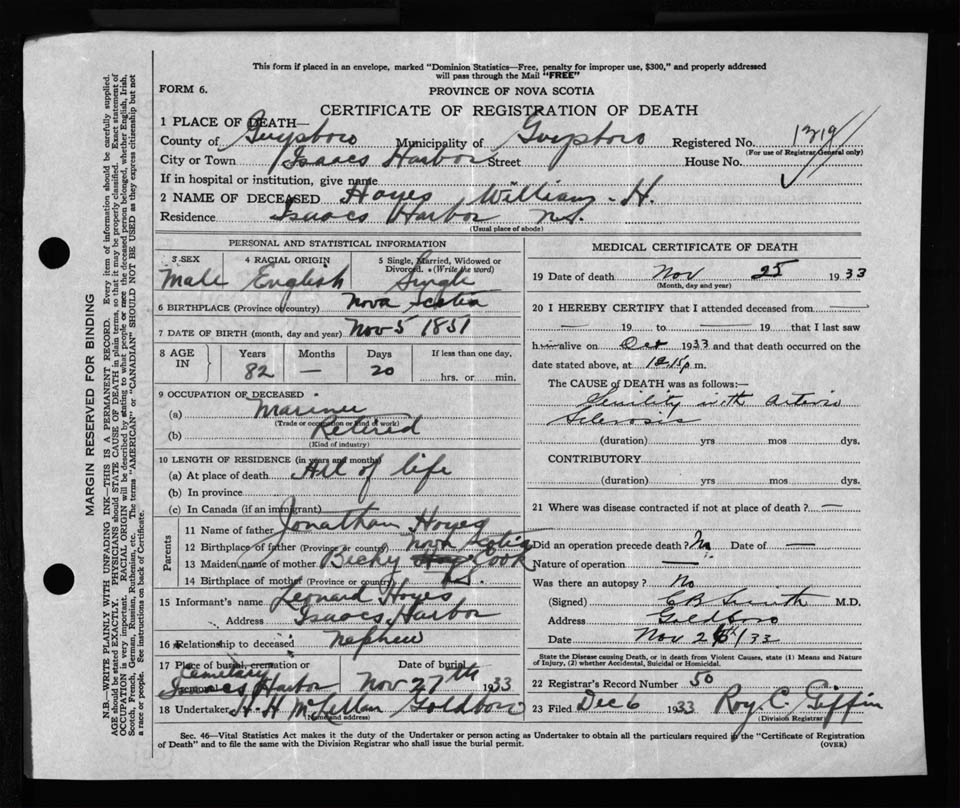 This form if placed in an envelope, marked "Dominion Statistics—Free, penalty for improper use, $300," and properly addressed
will pass through the Mail "FREE"
FORM 6.
PROVINCE OF NOVA SCOTIA
CERTIFICATE OF REGISTRATION OF DEATH
1 PLACE OF DEATH—
County of Guysboro Municipality of Guysboro Registered No. 1319
(For use of Registrar General only)
City or Town Isaacs Harbor Street House No.
If in hospital or institution, give name
2 NAME OF DECEASED Hoyes William H.
Residence Isaacs Harbor N.S.
(Usual place of abode)
PERSONAL AND STATISTICAL INFORMATION
3 SEX 4 RACIAL ORIGIN 5 Single, Married, Widowed or
Divorced. (Write the word)
Male English Single
6 BIRTHPLACE (Province or country) Nova Scotia
7 DATE OF BIRTH (month, day and year) Nov 5 1851
8 AGE IN Years Months Days If less than one day,
82 — 20 hrs. or min.
9 OCCUPATION OF DECEASED
(a) Mariner
(Trade or occupation or kind of work)
(b) Retired
(Kind of industry)
10 LENGTH OF RESIDENCE (in years and months)
(a) At place of death All of life
(b) In province
(c) In Canada (if an immigrant)
Parents
11 Name of father Jonathan Hoyes
12 Birthplace of father (Province or country) Nova Scotia
13 Maiden name of mother Becky Cook
14 Birthplace of mother (Province or country) N.S.
15 Informant's name Leonard Hoyes
Address Isaacs Harbor
16 Relationship to deceased nephew
17 Place of burial, cremation or Date of burial
Cemetary
Isaacs Harbor Nov 27th 1933
18 Undertaker H. H McLellan Goldboro
(Name and address)
MEDICAL CERTIFICATE OF DEATH
19 Date of death Nov 25 1933
(Month, day and year)
20 I HEREBY CERTIFY that I attended deceased from
— 19 to — 19 that I last saw
him alive on Oct 1933 and that death occurred on the
date stated above, at m.
The CAUSE of DEATH was as follows:—
Senility with Arterio
Sclerosis
(duration) yrs mos dys.
CONTRIBUTORY
(duration) yrs mos dys.
21 Where was disease contracted if not at place of death? —
Did an operation precede death? No Date of —
Nature of operation —
Was there an autopsy? No
(Signed) C B Smith M.D.
Address Goldboro
Date Nov /33
State the Disease causing Death, or in death from Violent Causes, state (1) Means and Nature
of Injury, (2) whether Accidental, Suicidal or Homicidal.
22 Registrar's Record Number 50
23 Filed Dec 6 1933 Roy C. Giffin
(Division Registrar)
Sec. 46—Vital Statistics Act makes it the duty of the Undertaker or person acting as Undertaker to obtain all the particulars required in the "Certificate of Registration
of Death" and to file the same with the Division Registrar who shall issue the burial permit. (OVER)
MARGIN RESERVED FOR BINDING
N.B.—WRITE PLAINLY WITH UNFADING INK—THIS IS A PERMANENT RECORD. Every item of information should be carefully supplied.
AGE should be stated EXACTLY. PHYSICIANS should STATE CAUSE OF DEATH in plain terms, so that it may be properly classified. Exact statement of
OCCUPATION is very important. RACIAL ORIGIN will be described by stating to what people or race the deceased person belonged, whether English, Irish,
Scotch, French, German, Russian, Ruthenian, etc. The terms "AMERICAN" or "CANADIAN" SHOULD NOT BE USED as they express citizenship but not
a race or people. See instructions on back of Certificate.